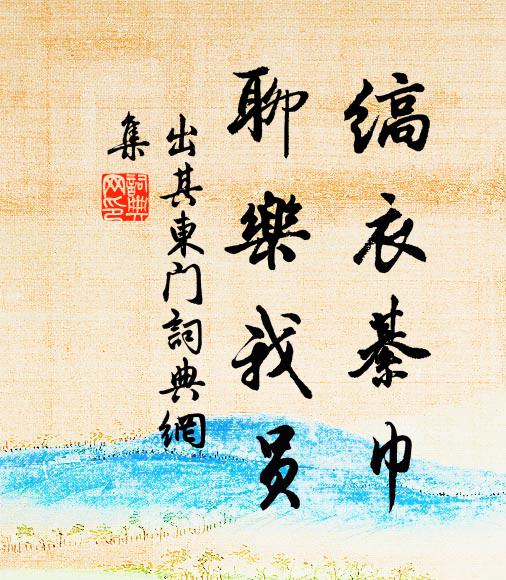 缟衣綦巾
聊樂我员
出其東門詞典網
集
詞典
网印